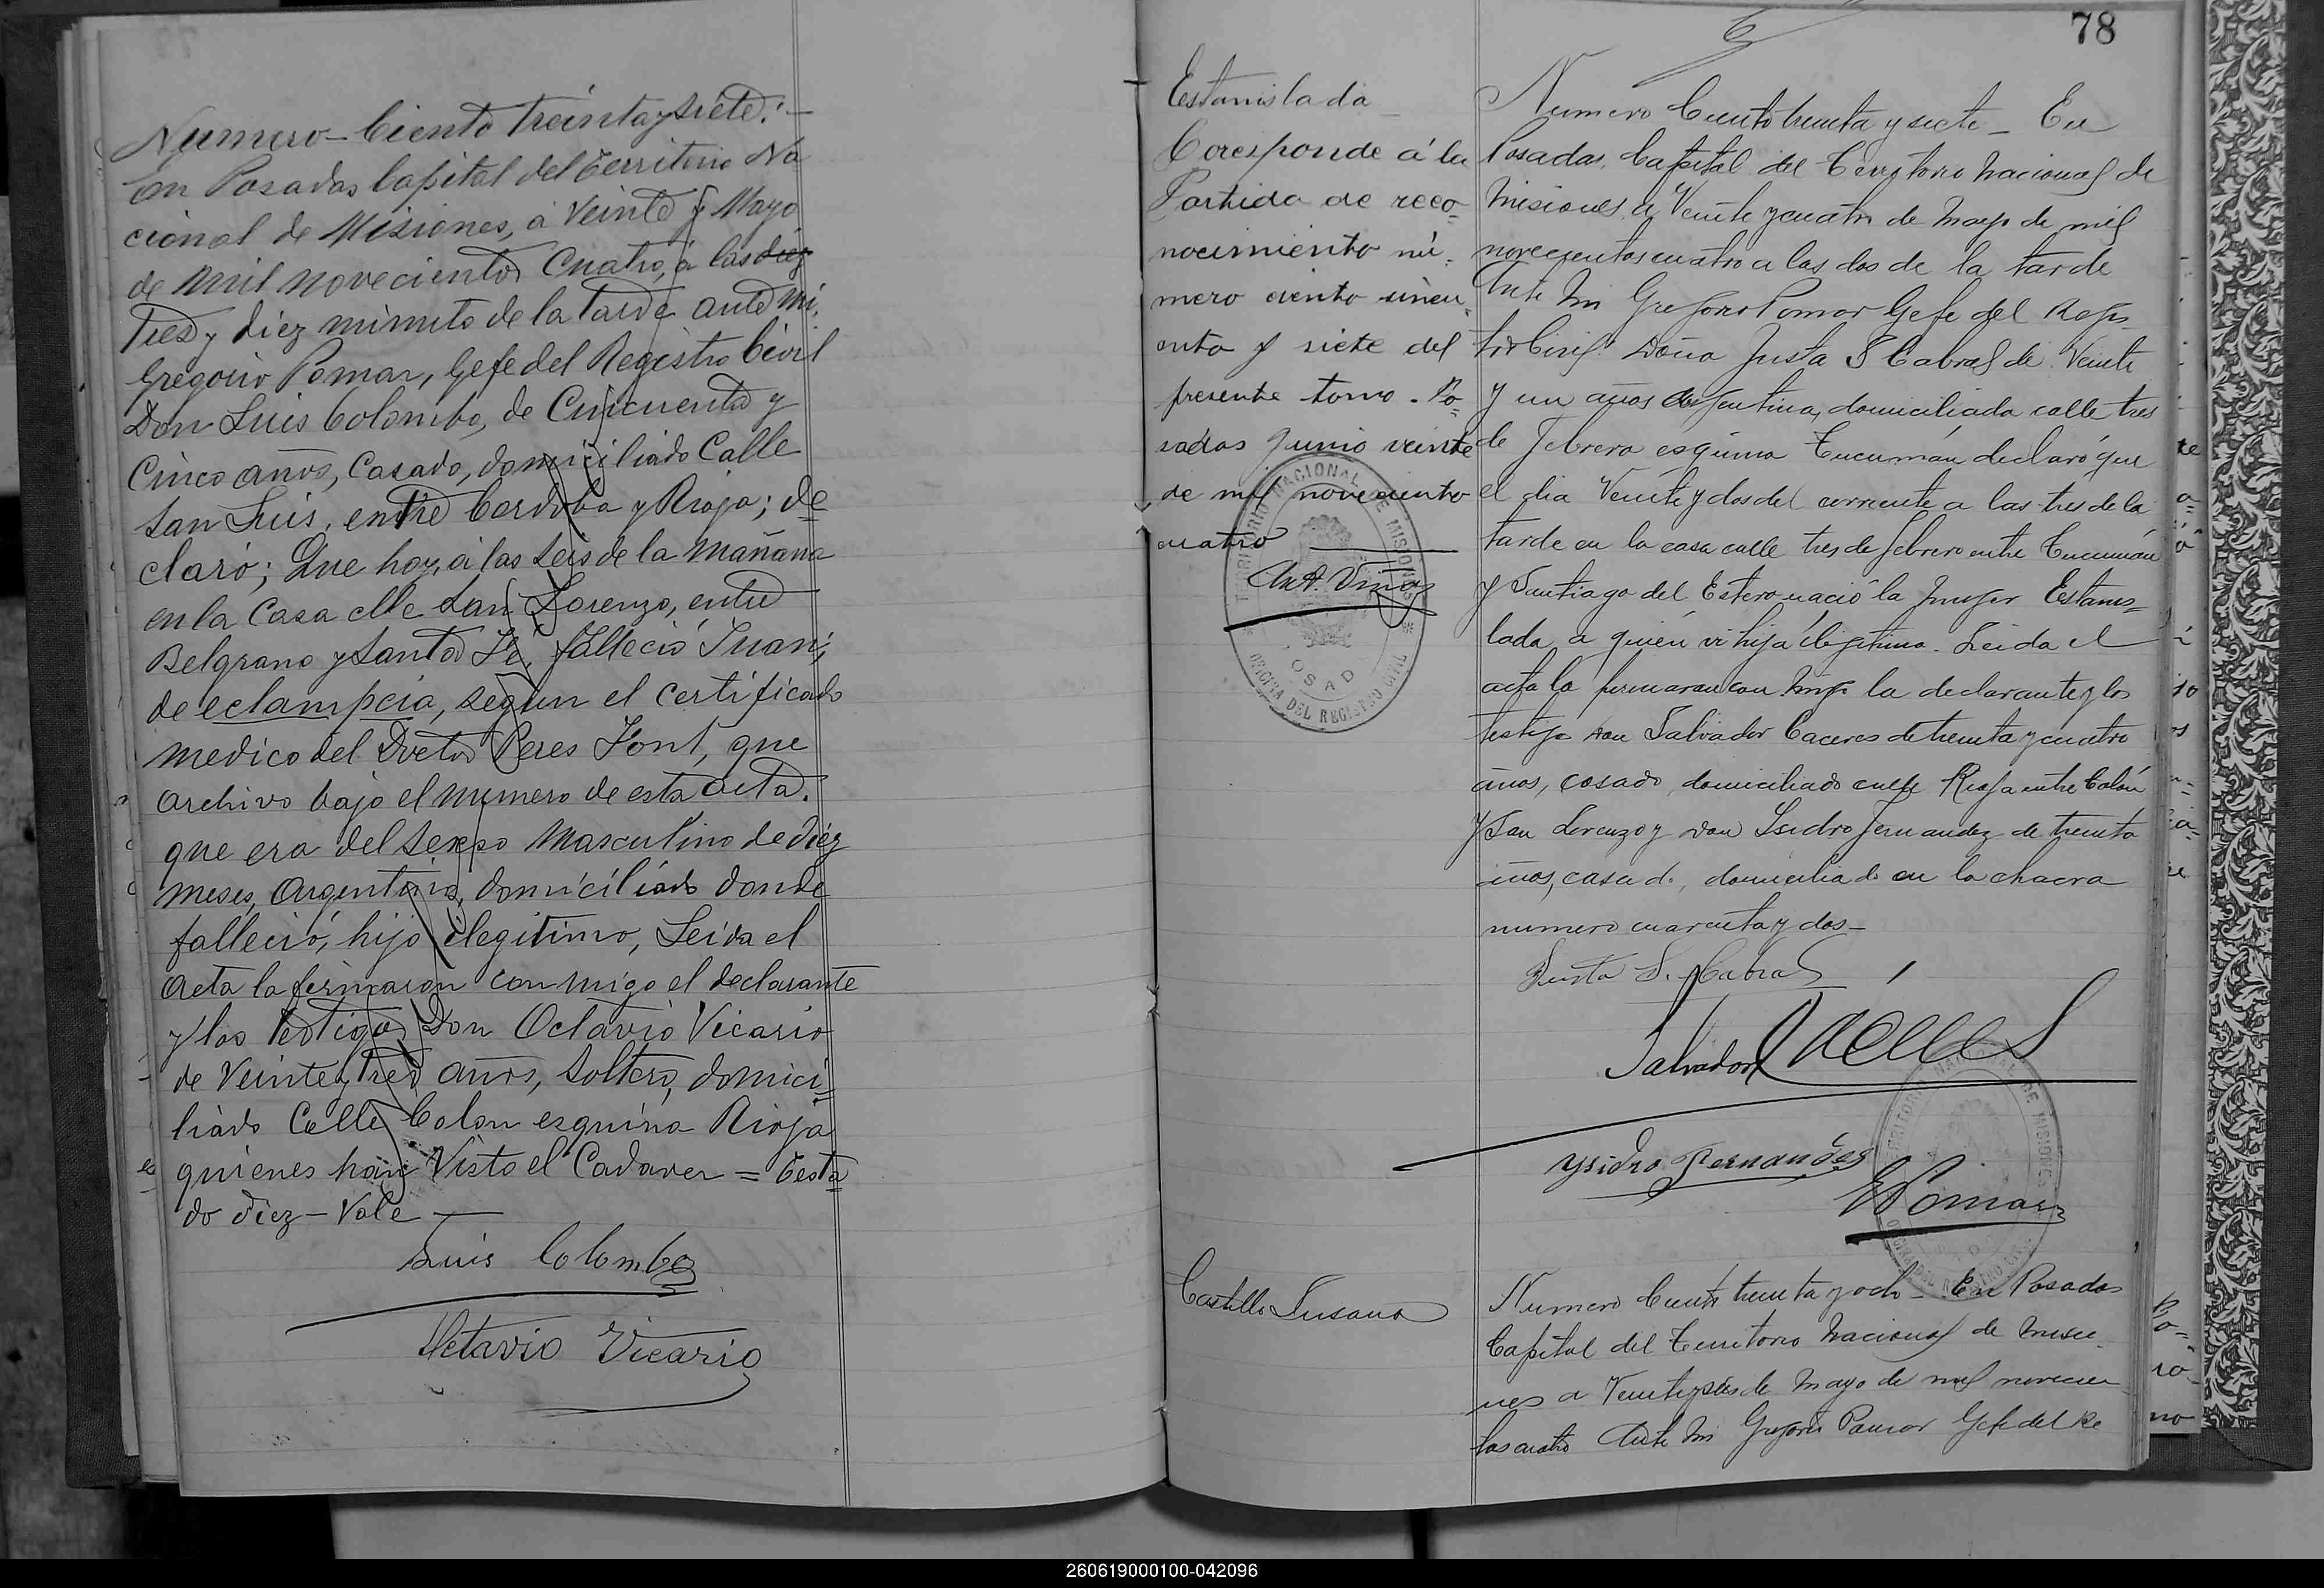 Numero - Ciento treinta y siete. -
En Posadas Capital del Territorio Na
cional de Misiones, a Veinte y Mayo
de Mil novecientos Cuatro, á las diez
Tres y diez minuto de la tarde ante mi,
Gregorio Pomar, Gefe del Registro Civil
Don Luis Colombo, de Cincuenta y
Cinco años, Casado, domiciliado Calle
San Luis, entre Cordoba y Rioja; de
claró; Que hoy, á las seis de la mañana
en la Casa clle San Lorenzo, entre
Belgrano y Santa Fé, falleció Juan,
de eclampcia, según el certificado
medico del Dotor Peres Font, que
archivo bajo el numero de esta acta.
que era del sexso Masculino de diez
meses, Argentino, domiciliado donde
falleció, hijo ilegitimo, Leida el
acta la firmaron con migo el declarante
y los testigos Don Octavio Vicario
de Veinte y tres años, soltero, domici=
liado Calle Colon esquina Rioja
quienes han Visto el Cadaver = Testa
do diez - Vale -
Luis Colombo
Octavio Vicario
78
Estanislada
Coresponde á la
Partida de reco=
nocimiento nú=
mero ciento cincu
enta y siete del
presente tomo. Po=
sadas Junio veinte
de mil noveciento
cuatro
TERRITORIO NACIONAL DE MISIONES
POSADAS
OFICINA DEL REGISTRO CIVIL
Numero Ciento treinta y siete - En
Posadas, Capital del Territorio Nacional de
Misiones, a Veinte y cuatro de Mayo de mil
novecientos cuatro a las dos de la tarde
Ante mi Gregorio Pomar Gefe del Regis
tro Civil: Doña Justa S Cabral de Veinte
y un años Argentina, domiciliada calle tres
de Febrero esquina Tucumán declaró que
el dia Veinte y dos del corriente a las tres de la
tarde en la casa calle tres de febrero entre Tucumán
y Santiago del Estero nació la mujer Estanis=
lada, a quien vi hija ilegitima. Leida el
acta la firmaron con migo la declarante y los
testigo Don Salvador Caceres de treinta y cuatro
años, casado, domiciliado calle Rioja entre Colón
y San Lorenzo y Don Isidro Fernandez de treinta
años, casado, domiciliado en la chacra
numero cuarenta y dos -
Justa S. Cabral
Salvador Caceres
Ysidro Fernandes
GPomar
TERRITORIO NACIONAL DE MISIONES
Castillo Susana
Numero Ciento treinta y ocho - En Posadas
Capital del Territorio Nacional de Misio
nes a Veinte y seis de Mayo de mil novecien
tos cuatro Ante mi Gregorio Pomar Gefe del Re
260619000100-042096